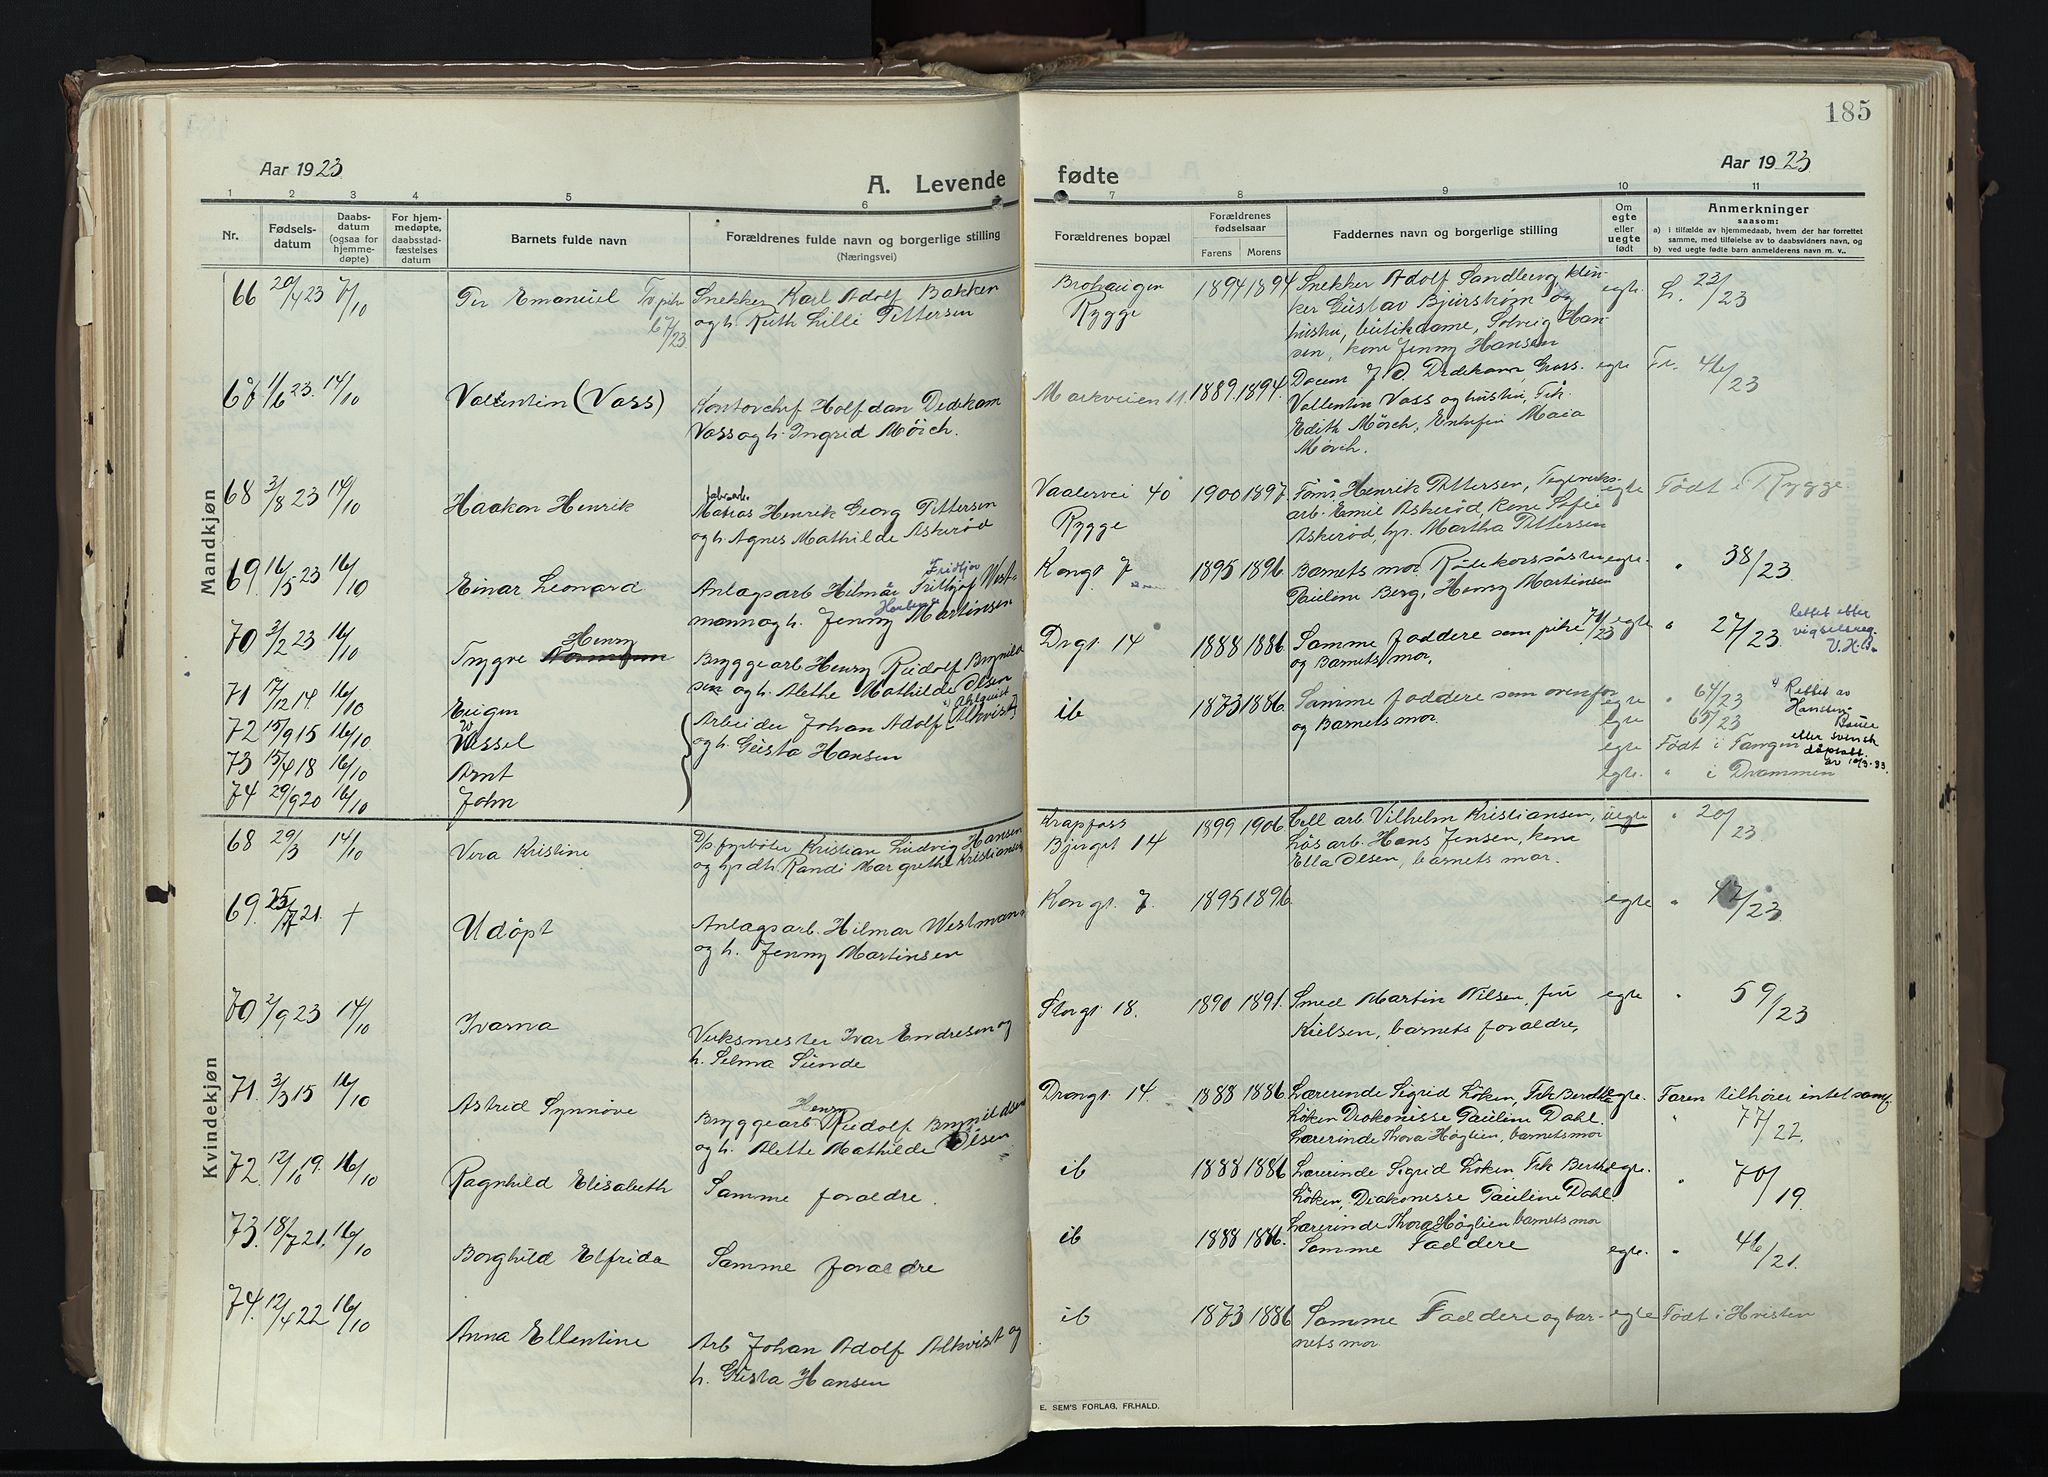 185
Aar 1923
A. Levende
fødte
Aar 1923
1 2 3 4 5 6 7 8 9 10 11
Nr.
Fødsels-
datum
Daabs-
datum
(ogsaa for
hjemme-
døpte)
For hjem-
medøpte,
daabsstad-
fæstelses
datum
Barnets fulde navn
Forældrenes fulde navn og borgerlige stilling
(Næringsvei)
Forældrenes bopæl
Forældrenes
fødselsaar
Farens
Morens
Faddernes navn og borgerlige stilling
Om
egte
eller
uegte
født
Anmerkninger
saasom:
a) i tilfælde av hjemmedaab, hvem der har forrettet
samme, med tilføielse av to daabsvidners navn, og
b) ved uegte fødte barn anmelderens navn m. v..
Mandkjøn
66 20/4 23 7/10 Per Emanuel Snekker Karl Adolf Bakken
og h. Ruth Lilli Pettersen
67/23
Brohaugen
Rygge
1894 1894
Snekker Adolf Sandberg, klin-
ker Gustav Bjurstrøm og
hustru, butikdame, Solveig Han-
sen, kone Jenny Hansen
egte. L. 23/23
68 11/6 23. 14/10 Vallentin (Vass) Kontorchef Halfdan Dedekam
Vass og h. Ingrid Mörch.
Markveien 11. 1889. 1894.
Vallentin Vass og hustru, Frk.
Edith Mörch, Enkefru Maia
Mörch.
egte Fr. 46/23
68 3/8 23 14/10 Haakon Henrik
Matias Henrik Georg Pettersen
og h. Agnes Mathilde Askerød
Vaalervei 40
Rygge
1900 1897.
Henrik Pettersen, Teglverks-
arb. Emil Askerød, kone Sofie
Askerød, Martha Pettersen
egte Født i Rygge.
69. 16/5 23 16/10 Einar Leonard Anlagsarb Hilmar Fritjof West-
mann og h. Jenny Martinsen
Fridtjov
Kongs. 7 1895 1896.
Barnets mor Rødekorssøster
Pauline Berg, Henry Martinsen
egte. " 38/23.
70 3/2 23 16/10 Trygve Henry
Bryggearb Henry Rudolf Brynild-
sen og h. Alethe Mathilde Olsen
Drgt 14 1888 1886.
Samme faddere som pike 71/23
og Barnets mor.
egte " 27/23.
Rettet efter
vigselsreg.
71 17/12 14. 16/10 Eugen
72 15/9 15 16/10 Wessel
73 15/4 18 16/10 Arnt
74 29/9 20 16/10 John
Arbeider Johan Adolf [Alkvist]
Ahlquist
og h. Gusta Hansen
ib 1873 1886.
Samme faddere som ovenfor
og Barnets mor.
egte " 64/23
egte 65/23
egte Født i Tangen
egte. " i Drammen
Rettet av
Hanssen
efter svensk
dåpsatt.
av 10/3-33.
Kvindekjøn
68 29/3 14/10 Vera Kristine D/S fyrbøter Kristian Ludvig Hansen
og Randi Margrethe Kristiansen
Krapfoss
Bjerget 14
1899 1906.
Cell arb Vilhelm Kristiansen,
Løsarb. Hans Jensen, kone
Ella Olsen, barnets mor.
uegte " 20/23.
69. 25/7 21. + Udöpt Anlagsarb. Hilmar Westman
og h. Jenny Martinsen
Kongs. 7. 1895 1896.
egte " 47/23.
70 2/9 23 14/10 Ivarna Verksmester Ivar Endresen og
h. Selma Sunde
Storgt 18. 1890 1891.
Smed Martin Nilsen, fru
Nielsen, barnets foraldre,
egte " 59/23
71. 3/3 15 16/10 Astrid Synnøve
Henry
Bryggearb. Rudolf Brynildsen
og h. Alette Mathilde Olsen
Drongt 14. 1888 1886.
Lærerinde Sigrid Löken, Frk Bertha
Löken Diakonisse Pauline Dahl.
Lærerinde Thora Höglien, barnets mor
egte. Faren tilhører intet samf.
" 77/22.
72. 12/10 19. 16/10 Ragnhild Elisabeth Samme foraldre.
ib 1888 1886
Lærerinde Sigrid Löken Frk Bertha
Löken, Diakonisse Pauline Dahl.
Lærerinde Thora Höglien barnets mor
egte. " 70/19.
73. 18/7 21. 16/10 Borghild Elfrida Samme foraldre
ib 1888 1886.
Samme Faddere
egte. " 46/21.
74. 12/4 22 16/10 Anna Ellentine Arb Johan Adolf Alkvist og
h. Gusta Hansen
ib 1873 1886
Samme Faddere og bar-
nets mor.
egte Født i Hvitsten
E. SEM'S FORLAG, FR.HALD.